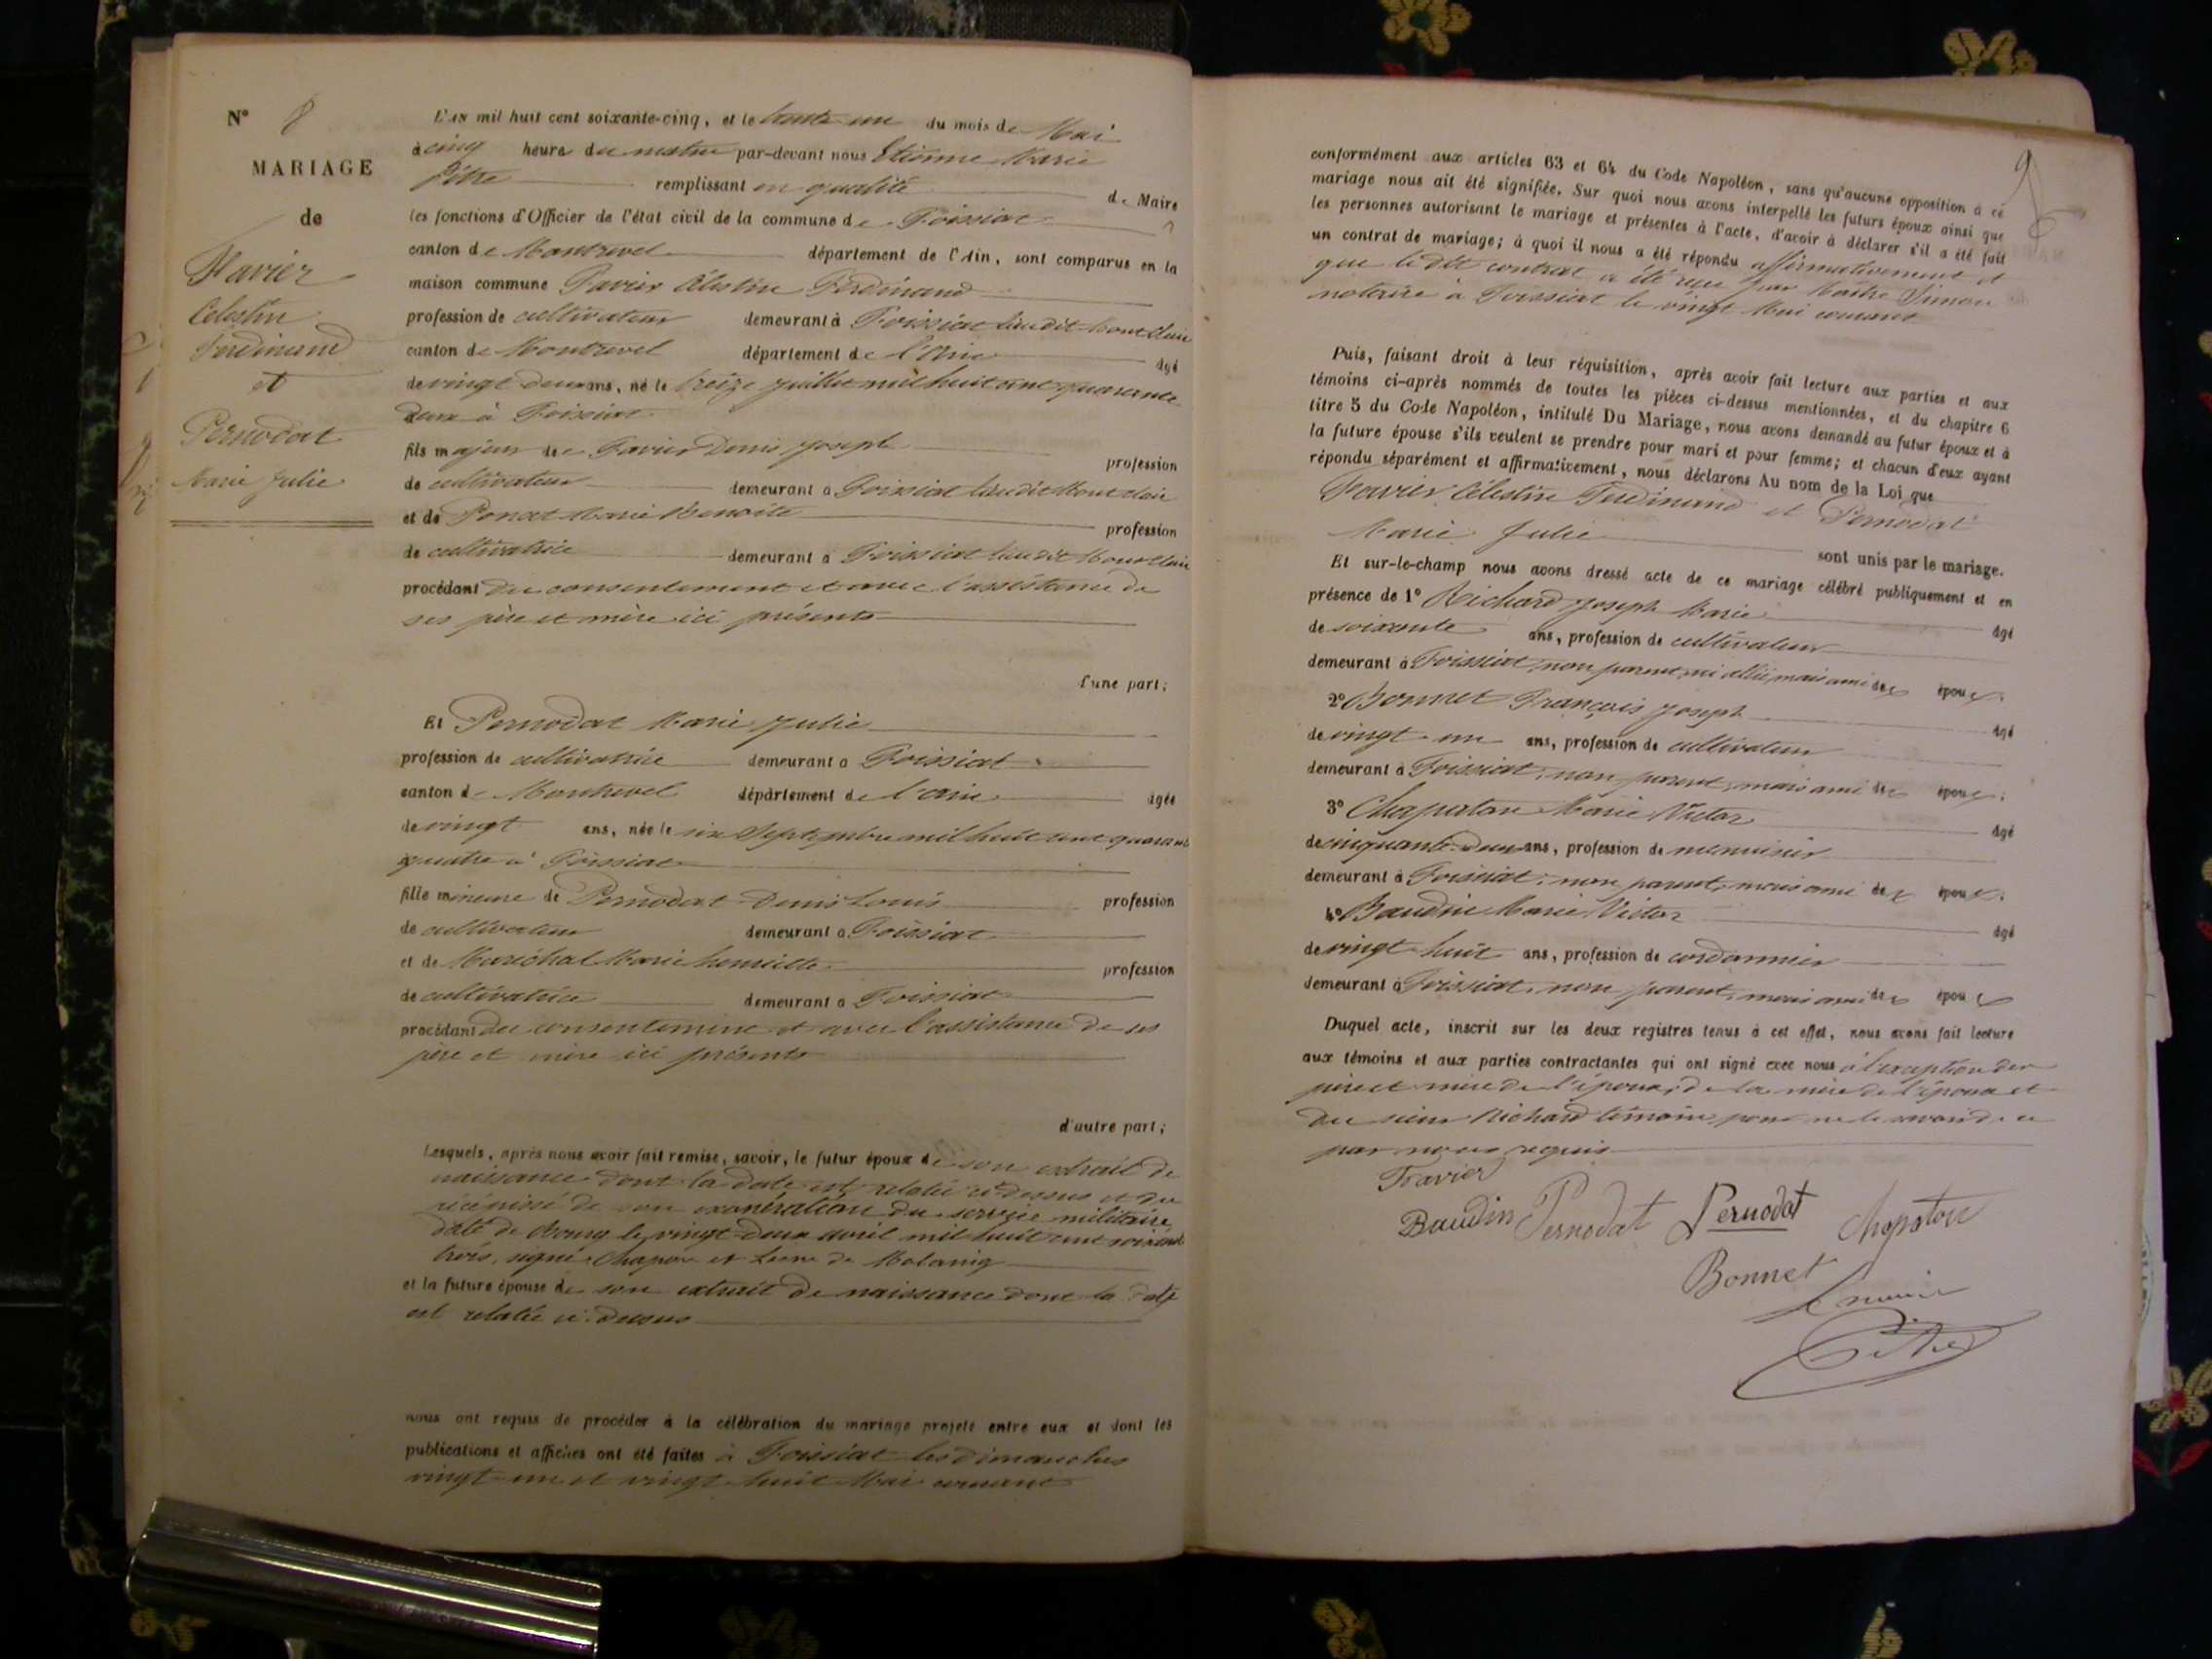 N° 8
MARIAGE
de
Favier
Celestin
Ferdinand
et
Pernodat
Marie Julie
L'an mil huit cent soixante-cinq, et le trente un du mois de Mai
à cinq heures du matin par-devant nous Etienne Marie
Pitre remplissant en qualité de Maire
les fonctions d'Officier de l'état civil de la commune de Foissiat
canton de Montrevel département de l'Ain, sont comparus en la
maison commune Favier Célestin Ferdinand
profession de cultivateur demeurant à Foissiat lieu dit Montclair
canton de Montrevel département de l'Ain âgé
de vingt deux ans, né le treize Juillet mil huit cent quarante
deux à Foissiat
fils majeur de Favier Denis Joseph profession
de cultivateur demeurant à Foissiat lieu dit Montclair
et de Poncet Marie Benoite profession
de cultivatrice demeurant à Foissiat lieu dit Montclair
procédant du consentement et avec l'assistance de
ses père et mère ici présents
d'une part;
Et Pernodat Marie Julie
profession de cultivatrice demeurant à Foissiat
canton de Montrevel département de l'Ain âgée
de vingt ans, née le six Septembre mil huit cent quarante
quatre à Foissiat
fille mineure de Pernodat Denis Louis profession
de cultivateur demeurant à Foissiat
et de Maréchal Marie henriette profession
de cultivatrice demeurant à Foissiat
procédant du consentement et avec l'assistance de ses
père et mère ici présents
d'autre part;
Lesquels, après nous avoir fait remise, savoir, le futur époux de son extrait de
naissance dont la date est relatée ci-dessus et du
récépissé de son exonération du service militaire,
daté de Bourg le vingt-deux avril mil huit cent soixante
trois, signé Chapon et
et la future épouse de son extrait de naissance dont la date
est relatée ci-dessus
nous ont requis de procéder à la célébration du mariage projeté entre eux et dont les
publications et affiches ont été faites à Foissiat les dimanches
vingt-un et vingt huit Mai courant
9
conformément aux articles 63 et 64 du Code Napoléon, sans qu'aucune opposition à ce
mariage nous ait été signifiée. Sur quoi nous avons interpellé les futurs époux ainsi que
les personnes autorisant le mariage et présentes à l'acte, d'avoir à déclarer s'il a été fait
un contrat de mariage; à quoi il nous a été répondu affirmativement et
que ledit contrat a été reçu par Maître Simon
notaire à Foissiat le vingt Mai courant
Puis, faisant droit à leur réquisition, après avoir fait lecture aux parties et aux
témoins ci-après nommés de toutes les pièces ci-dessus mentionnées, et du chapitre 6
titre 5 du Code Napoléon, intitulé Du Mariage, nous avons demandé au futur époux et à
la future épouse s'ils veulent se prendre pour mari et pour femme; et chacun d'eux ayant
répondu séparément et affirmativement, nous déclarons Au nom de la Loi que
Favier Célestin Ferdinand et Pernodat
Marie Julie sont unis par le mariage.
Et sur-le-champ nous avons dressé acte de ce mariage célébré publiquement et en
présence de 1° Richard Joseph Marie âgé
de soixante ans, profession de cultivateur
demeurant à Foissiat, non parent, ni allié, mais ami des époux;
2° Bonnet François Joseph âgé
de vingt-un ans, profession de cultivateur
demeurant à Foissiat, non parent, mais ami des époux;
3° Chapaton Marie Victor âgé
de cinquante-deux ans, profession de menuisier
demeurant à Foissiat, non parent, mais ami des époux;
4° Baudin Marie Victor âgé
de vingt huit ans, profession de cordonnier
demeurant à Foissiat, non parent, mais ami des époux
Duquel acte, inscrit sur les deux registres tenus à cet effet, nous avons fait lecture
aux témoins et aux parties contractantes qui ont signé avec nous à l'exception des
père et mère de l'époux, de la mère de l'épouse et
du sieur Richard témoin, pour ne le savoir de ce
par nous requis
Favier
Baudin Pernodat Pernodat Chapaton
Bonnet
Le maire
Pitre